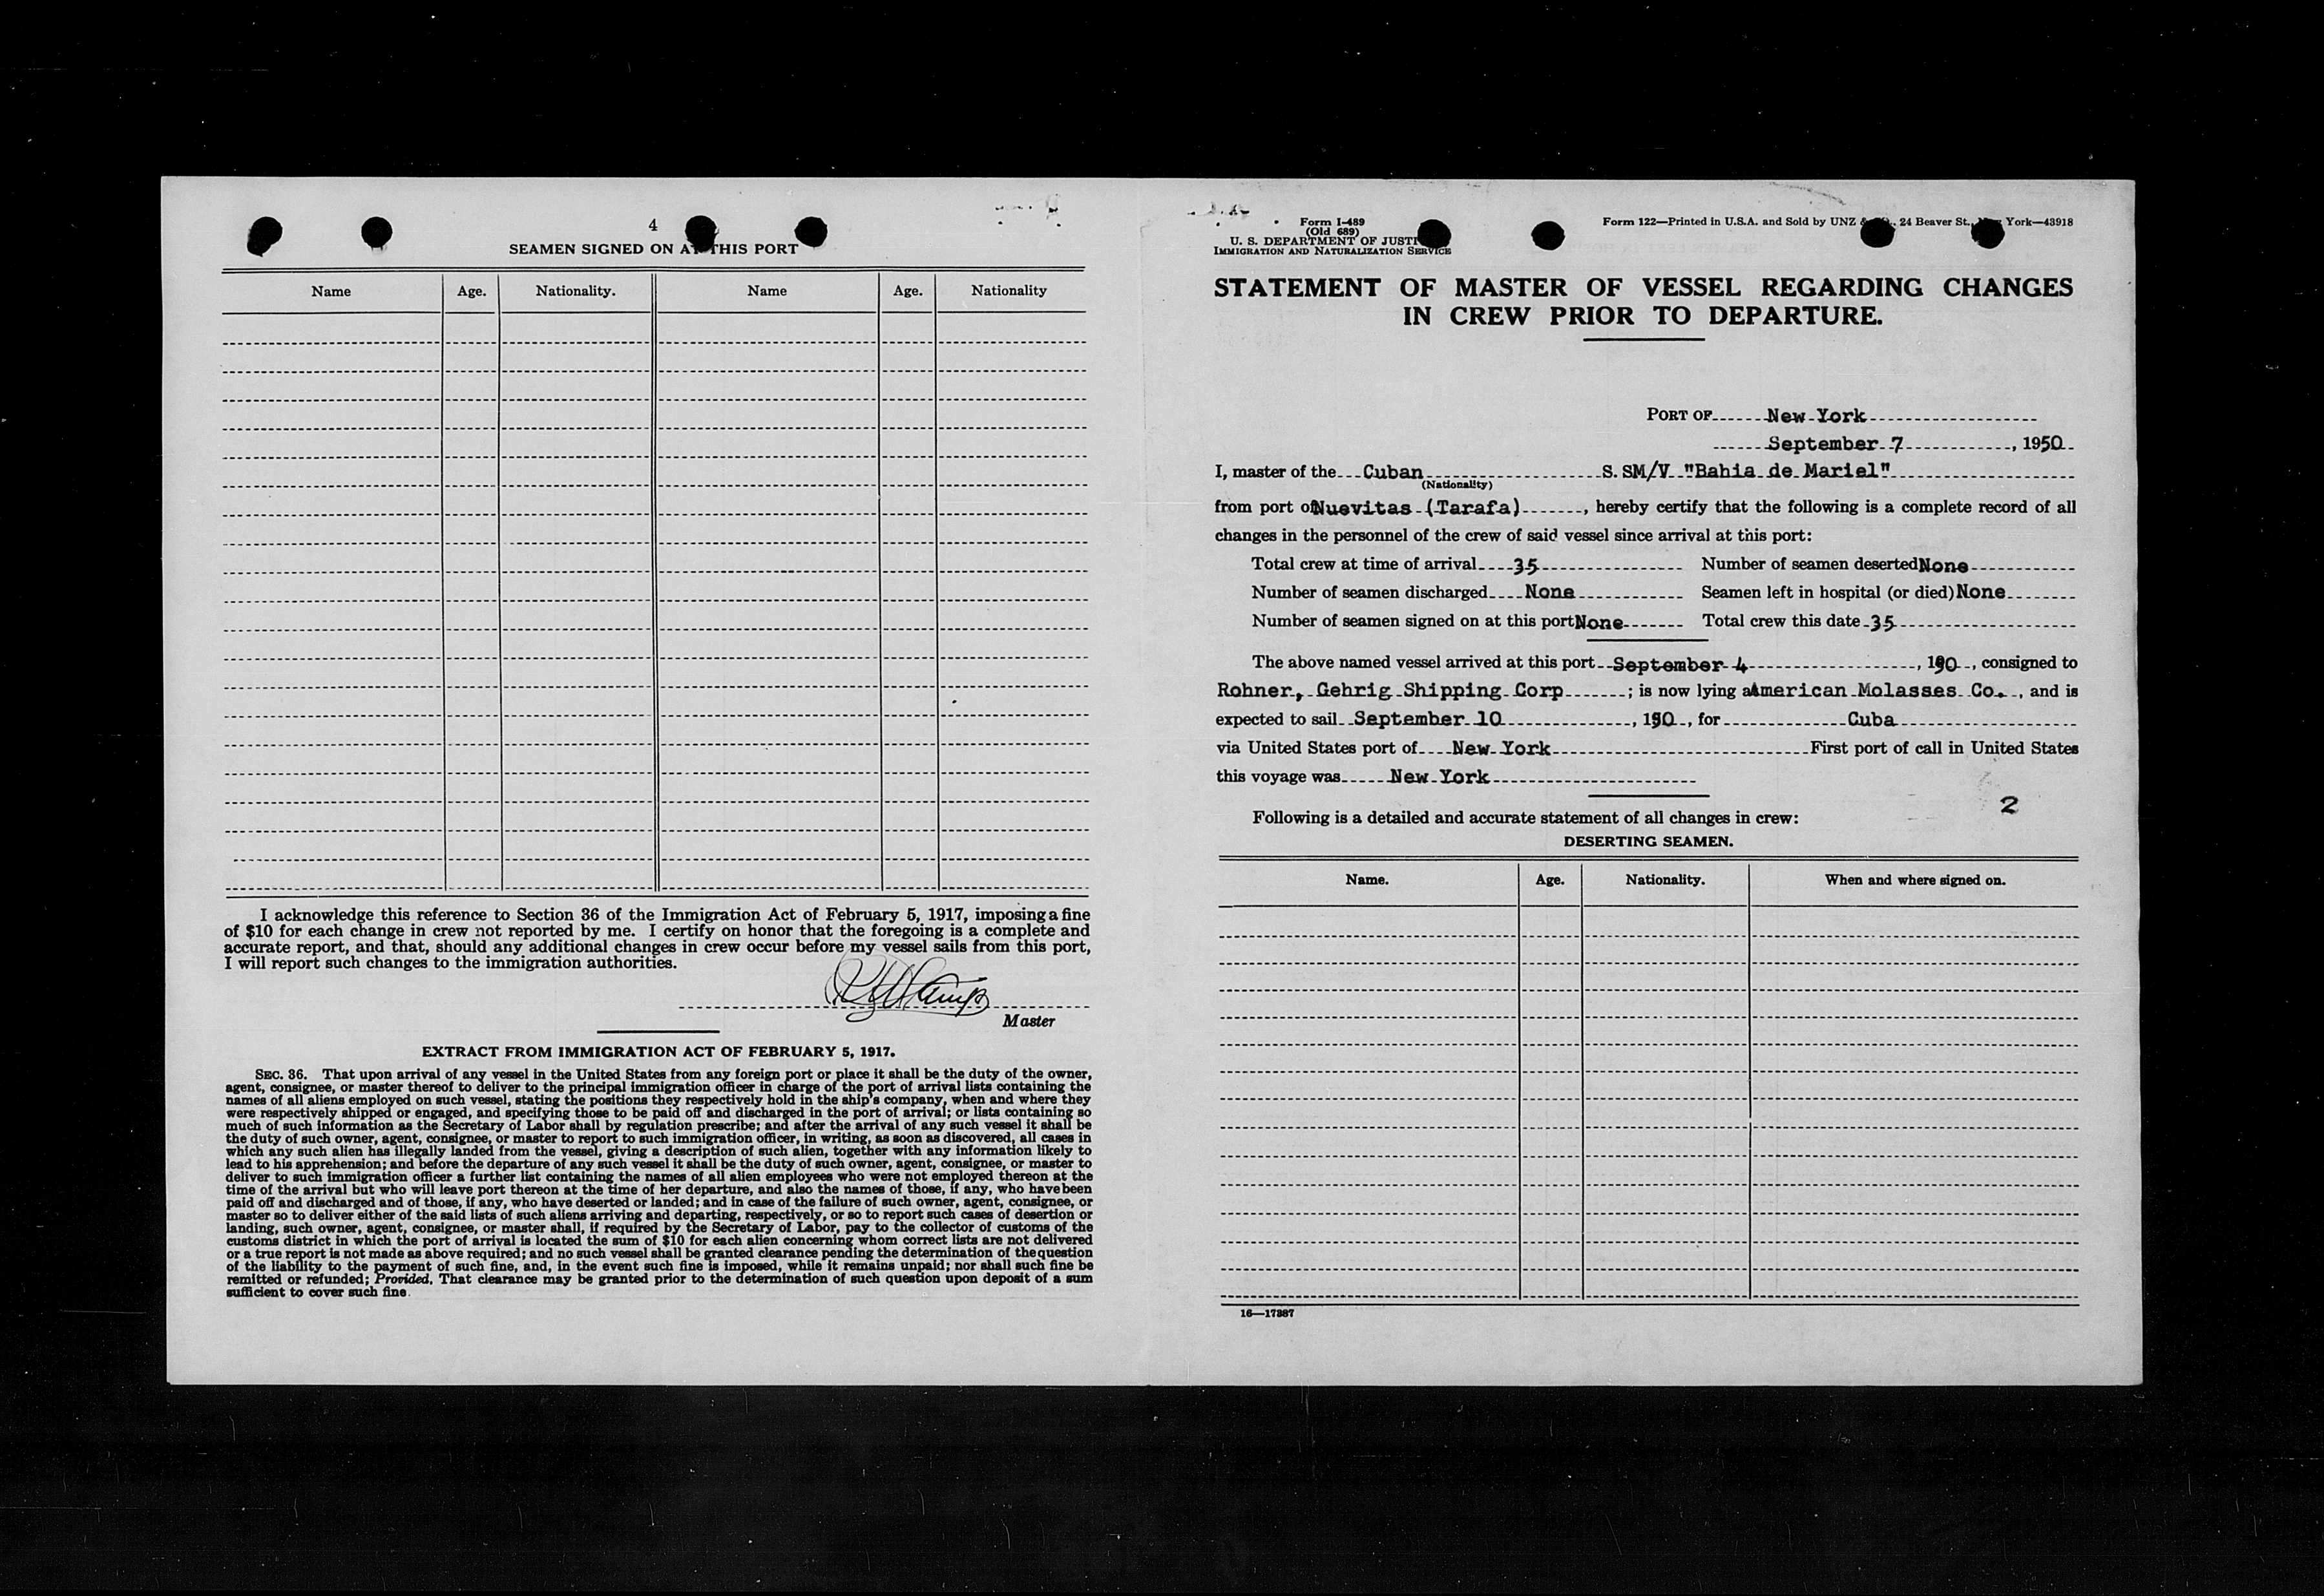 4
SEAMEN SIGNED ON AT THIS PORT
Name Age. Nationality. Name Age. Nationality
I acknowledge this reference to Section 36 of the Immigration Act of February 5, 1917, imposing a fine
of $10 for each change in crew not reported by me. I certify on honor that the foregoing is a complete and
accurate report, and that, should any additional changes in crew occur before my vessel sails from this port,
I will report such changes to the immigration authorities.
Master
EXTRACT FROM IMMIGRATION ACT OF FEBRUARY 5, 1917.
SEC. 36. That upon arrival of any vessel in the United States from any foreign port or place it shall be the duty of the owner,
agent, consignee, or master thereof to deliver to the principal immigration officer in charge of the port of arrival lists containing the
names of all aliens employed on such vessel, stating the positions they respectively hold in the ship's company, when and where they
were respectively shipped or engaged, and specifying those to be paid off and discharged in the port of arrival; or lists containing so
much of such information as the Secretary of Labor shall by regulation prescribe; and after the arrival of any such vessel it shall be
the duty of such owner, agent, consignee, or master to report to such immigration officer, in writing, as soon as discovered, all cases in
which any such alien has illegally landed from the vessel, giving a description of such alien, together with any information likely to
lead to his apprehension; and before the departure of any such vessel it shall be the duty of such owner, agent, consignee, or master to
deliver to such immigration officer a further list containing the names of all alien employees who were not employed thereon at the
time of the arrival but who will leave port thereon at the time of her departure, and also the names of those, if any, who have been
paid off and discharged and of those, if any, who have deserted or landed; and in case of the failure of such owner, agent, consignee, or
master so to deliver either of the said lists of such aliens arriving and departing, respectively, or so to report such cases of desertion or
landing, such owner, agent, consignee, or master shall, if required by the Secretary of Labor, pay to the collector of customs of the
customs district in which the port of arrival is located the sum of $10 for each alien concerning whom correct lists are not delivered
or a true report is not made as above required; and no such vessel shall be granted clearance pending the determination of the question
of the liability to the payment of such fine, and, in the event such fine is imposed, while it remains unpaid; nor shall such fine be
remitted or refunded; Provided, That clearance may be granted prior to the determination of such question upon deposit of a sum
sufficient to cover such fine.
Form I-489
(Old 689)
U. S. DEPARTMENT OF JUSTI
IMMIGRATION AND NATURALIZATION SERVICE
Form 122—Printed in U.S.A. and Sold by UNZ & , 24 Beaver St., New York—43918
STATEMENT OF MASTER OF VESSEL REGARDING CHANGES
IN CREW PRIOR TO DEPARTURE.
PORT OF New York
September 7, 1950
I, master of the Cuban S. SM/V "Bahia de Mariel"
(Nationality)
from port of Nuevitas (Tarafa), hereby certify that the following is a complete record of all
changes in the personnel of the crew of said vessel since arrival at this port:
Total crew at time of arrival 35 Number of seamen deserted None
Number of seamen discharged None Seamen left in hospital (or died) None
Number of seamen signed on at this port None Total crew this date 35
The above named vessel arrived at this port September 4, 190, consigned to
Rohner, Gehrig Shipping Corp; is now lying at American Molasses Co., and is
expected to sail September 10, 190, for Cuba
via United States port of New York First port of call in United States
this voyage was New York
2
Following is a detailed and accurate statement of all changes in crew:
DESERTING SEAMEN.
Name. Age. Nationality. When and where signed on.
16—17887